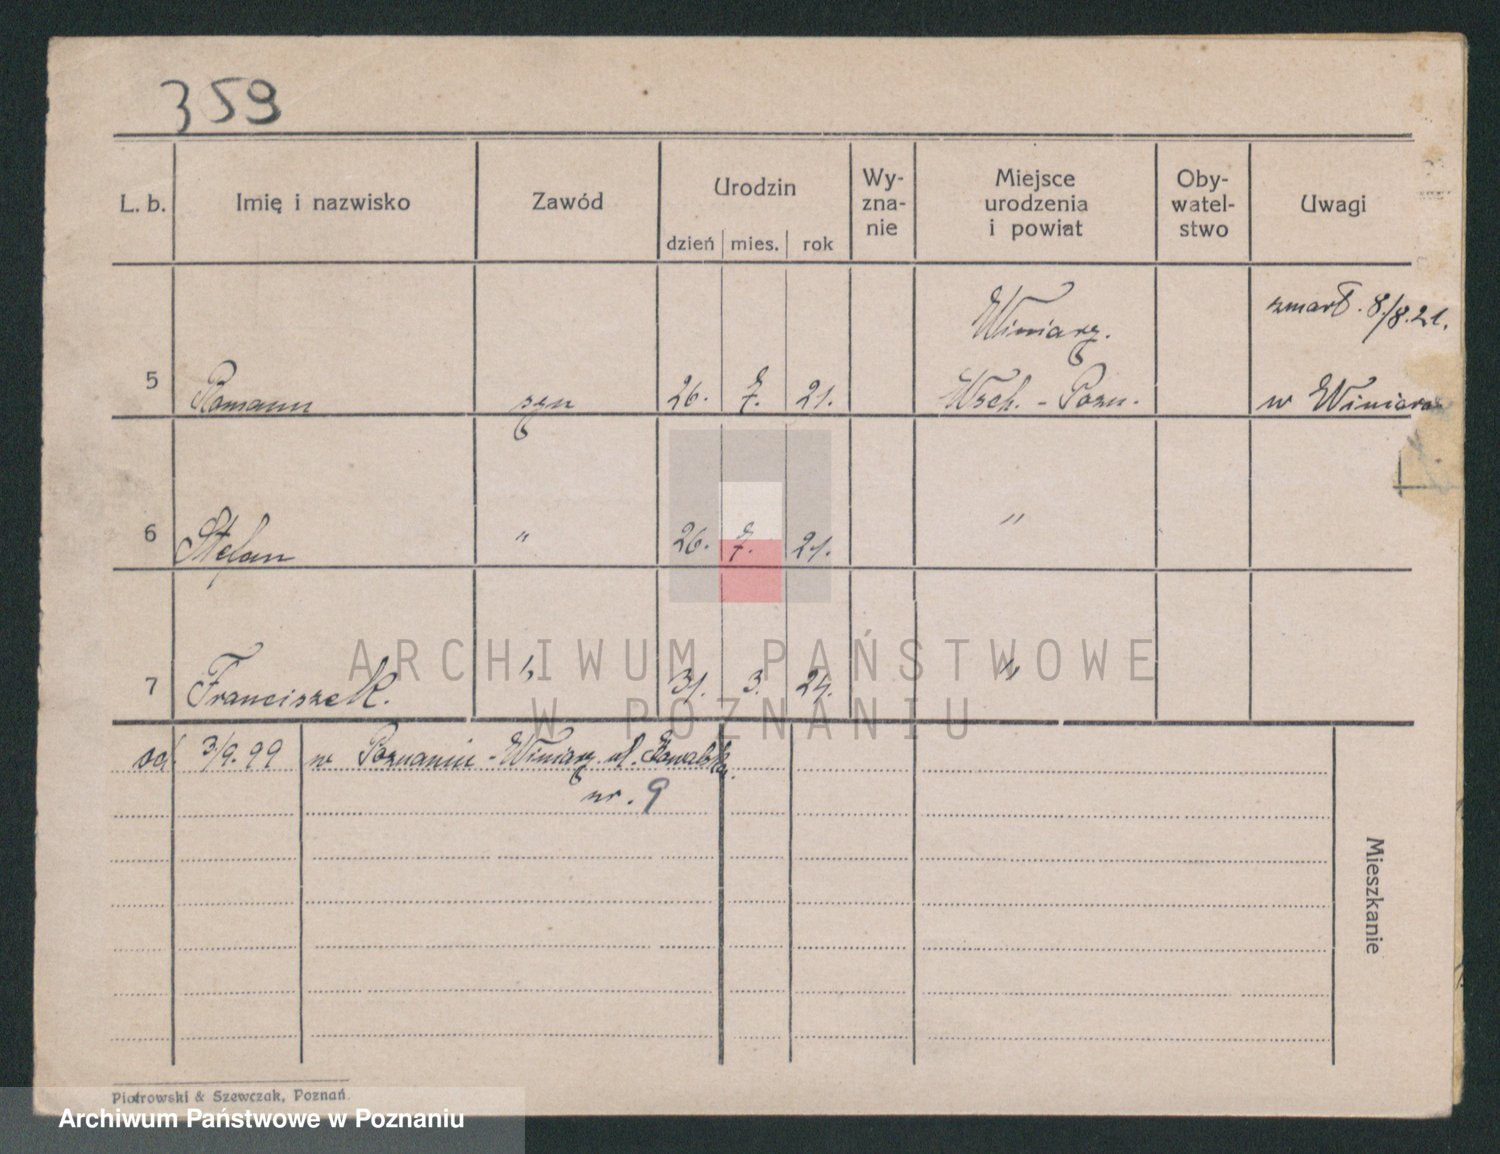 359
L. b. Imię i nazwisko Zawód Urodzin dzień mies. rok Wy-zna-nie Miejsce urodzenia i powiat Oby-watel-stwo Uwagi
Winiarz. zmarł. 8/8.21.
5 Romann syn 26. 7. 21. Wsch. - Pozn. w Winiarz
6 Stefan " 26. 7. 21. "
7 Franciszek. " 31. 3. 24. "
ARCHIWUM PAŃSTWOWE
W POZNANIU
od. 3/9.99 w Poznaniu - Winiarz. ul.
nr. 9
Mieszkanie
Piotrowski & Szewczak, Poznań.
Archiwum Państwowe w Poznaniu